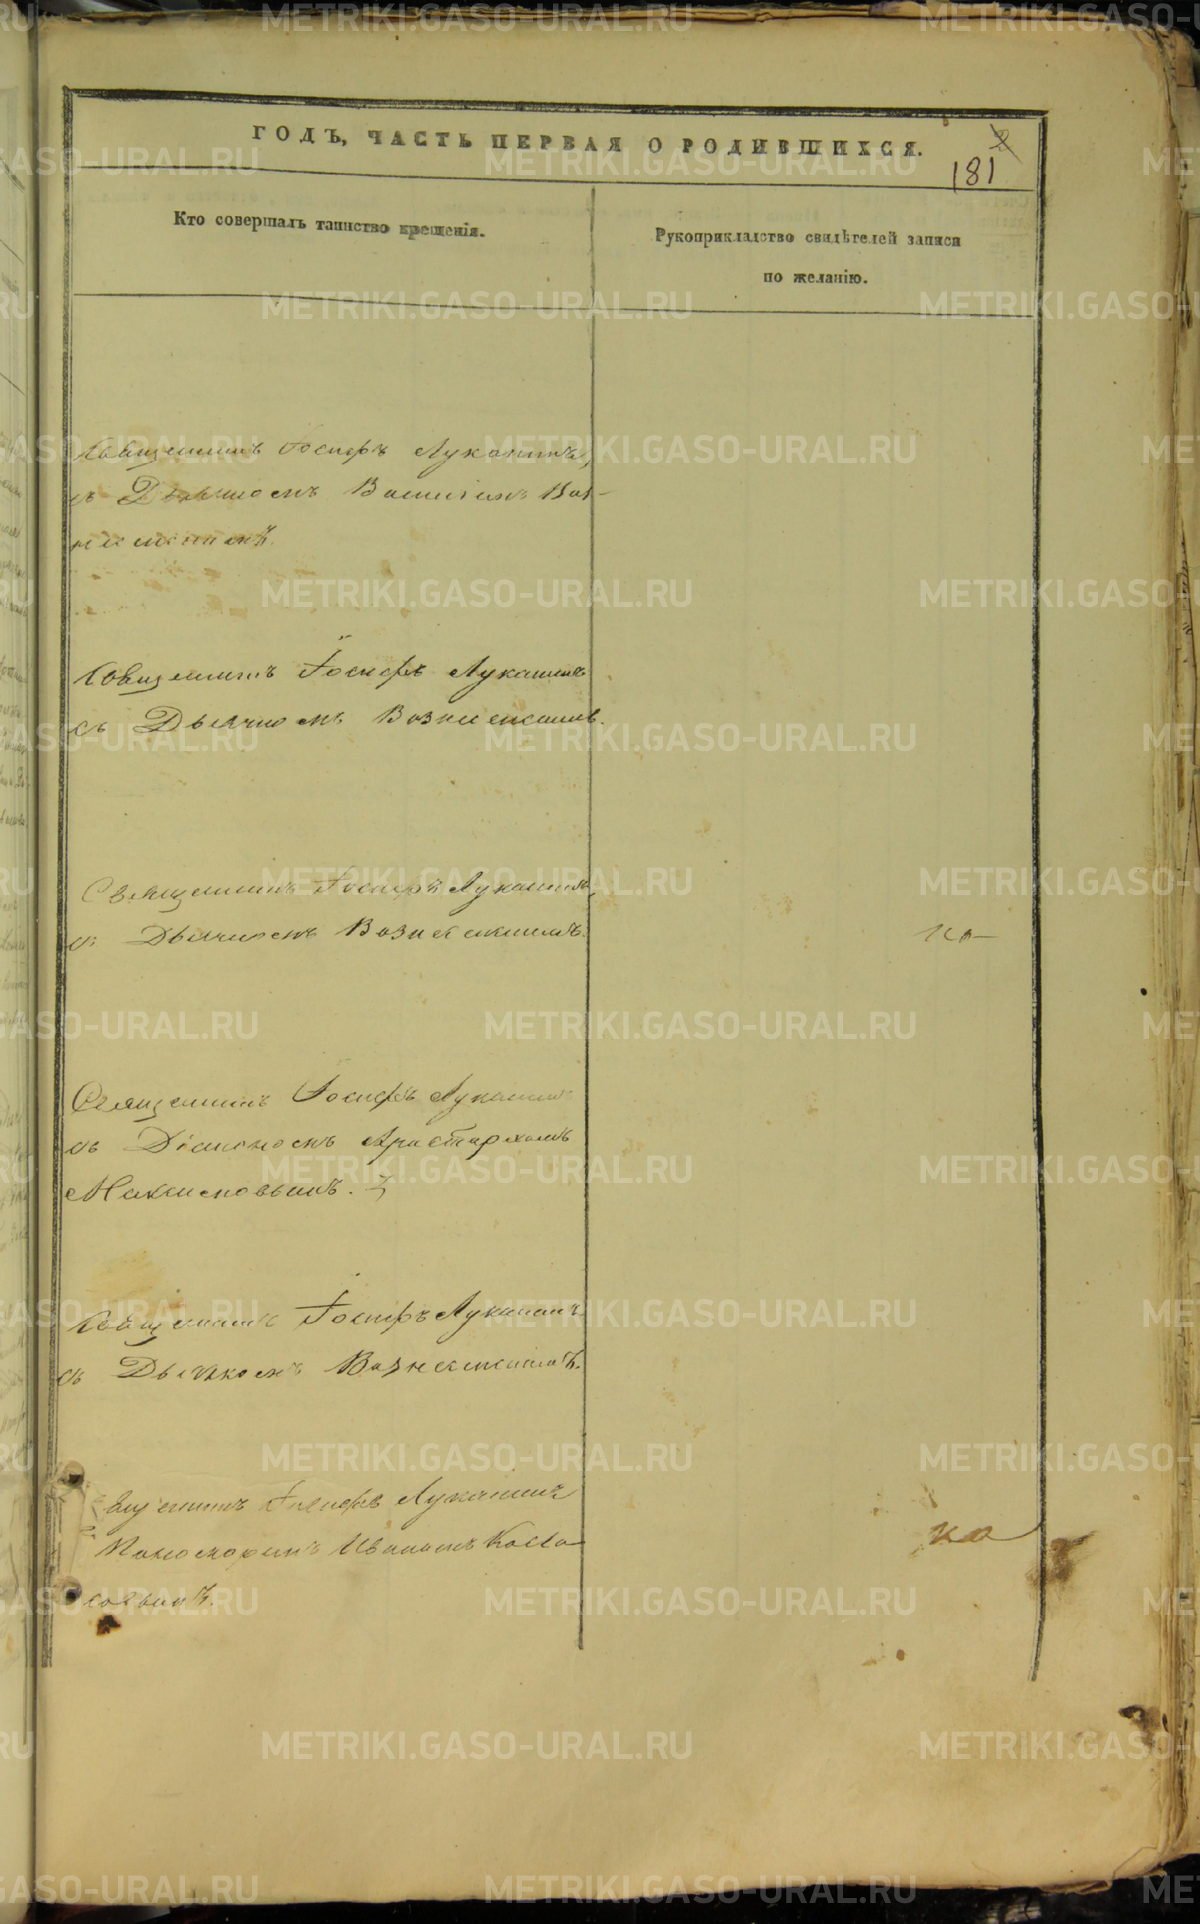 ГОДЪ, ЧАСТЬ ПЕРВАЯ О РОДИВШИХСЯ.
181
Кто совершалъ таинство крещенія.
Рукоприкладство свидѣтелей записи
по желанію.
Священникъ Іосифъ Луканинъ,
съ Дьячкомъ Василіемъ Воз-
несенскимъ.
Священникъ Іосифъ Луканинъ
съ Дьячкомъ Вознесенскимъ.
Священникъ Іосифъ Луканинъ,
съ Дьячкомъ Вознесенскимъ.
Священникъ Іосифъ Луканинъ
съ Діакономъ Аристархомъ
Максимовымъ.
Священникъ Іосифъ Луканинъ
съ Дьячкомъ Вознесенскимъ.
Священникъ Іосифъ Луканинъ
Пономаремъ Иваномъ
METRIKI.GASO-URAL.RU